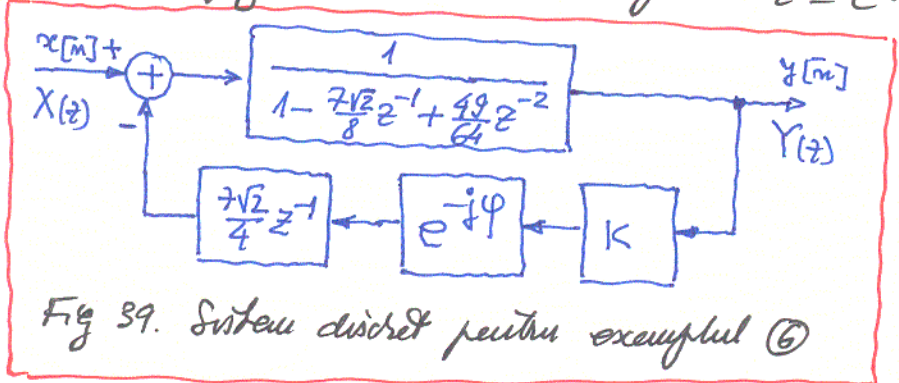 x[n] +
X(z)
+
-
1
1 - 7√2/8 z⁻¹ + 49/64 z⁻²
y[n]
Y(z)
7√2/4 z⁻¹
e^-jφ
K
Fig 39. Sistem discret pentru exemplul ⑥